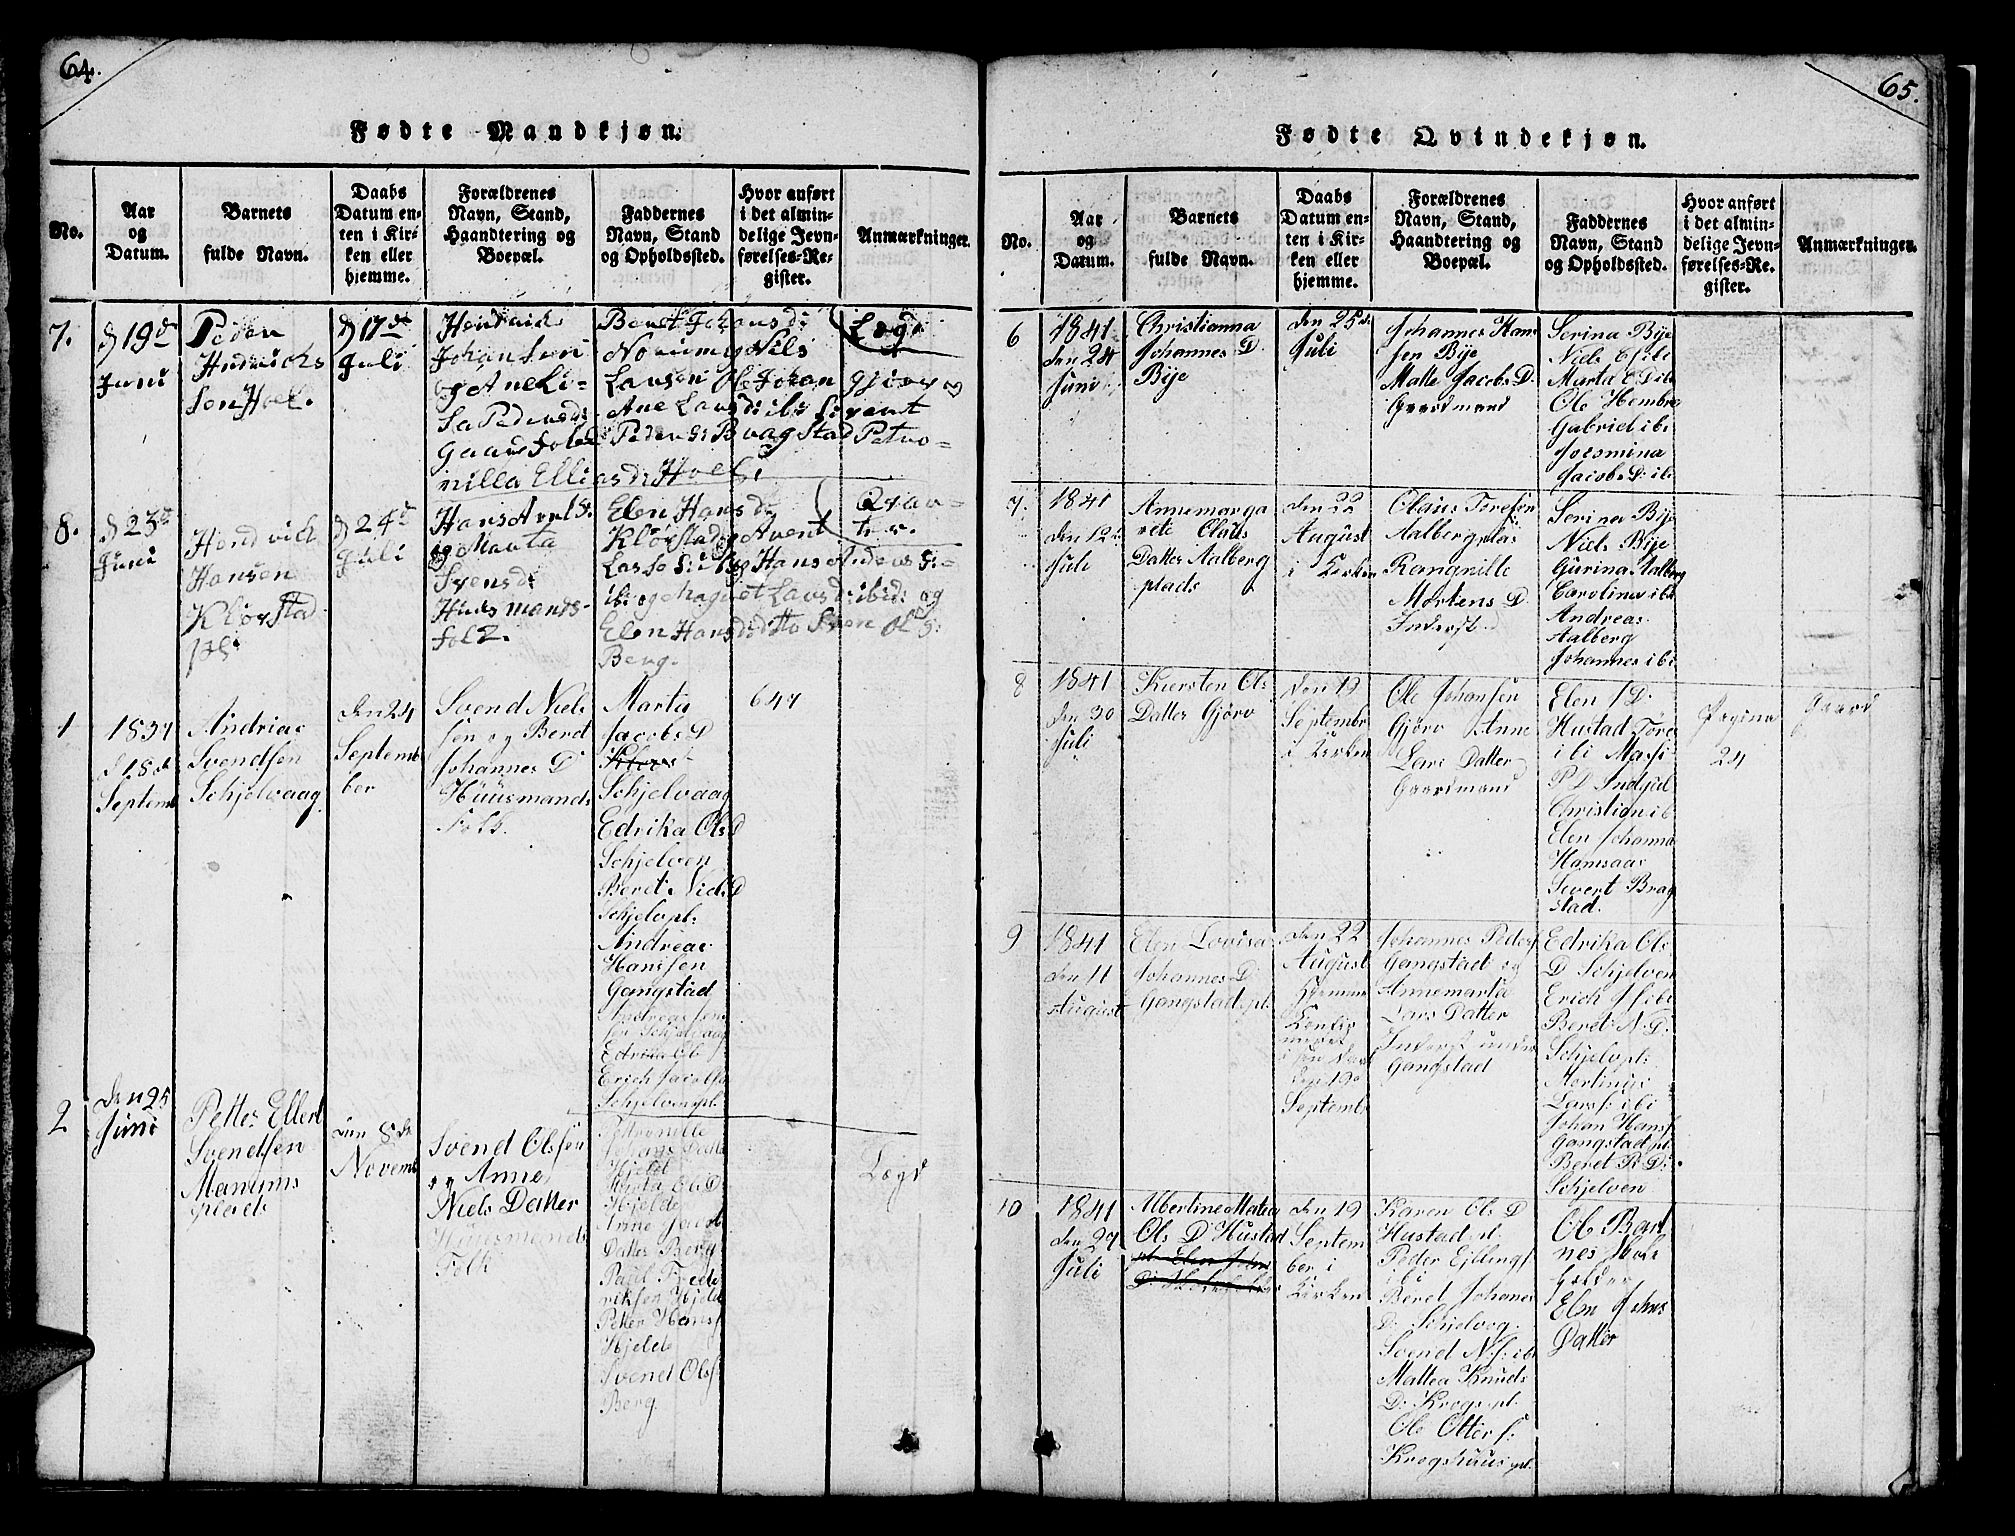 64.
Fødte Mandkjøn.
No.
Aar
og
Datum.
Barnets
fulde Navn.
Daabs
Datum en-
ten i Kir-
ken eller
hjemme.
Forældrenes
Navn, Stand,
Haandtering og
Boepæl.
Faddernes
Navn, Stand
og Opholdssted.
Hvor anført
i det almin-
delige Jevn-
førelses-Re-
gister.
Anmærkninger.
7.
d 19de
Juni
Peder
Hendrichs
Søn Hoel.
d 17de
Juli
Hendrich
Johansen
og Ane Li-
sa Peders d:
Gaard folk
Beret Johans d:
Norum og Nils
Larsen Ole Johan
Ane Lars d: ibi Sivert
Peder S: Bragstad Petro-
nilla Ellias d: Hoel.
8.
d 23de
Juni
Hendrich
Hansen
Klørstad
pls:
d 24de
Juli
Hans Arnt S:
og Marta
Svens d:
Huus mands-
folk.
Elen Hans d:
Klørstad og Arent
Lasse S: ibi og Hans Anders S:
ibi og Magret Lars d: ibid: og
Elen Hans d: ditto Sven Ol S:
Berg.
1
1837
d 18de
Septemb
Andrias
Svendsen
Schjelvaag
den 24
Septemb
ber
Svend Niels
sen og Beret
Johannes D
Huusmands
Folk.
Marta
Jacobs D
Schjelvaag
Edrika Ols D
Schjelven
Beret Niels D
Schjelvpl:
Andreas
Hansen
Gangstad
Edrika Ols
Erich Jacobs
Schjelven pl
647
2
den 25
Juni
Petter Ellert
Svendsen
Mamums
plads
den 8de
Novemb
Svend Olsen
og Anne
Niels Datter
Huusmands
Folk
Petronille
Johans Datter
Hjelde
Marta Ols D
Hjelde
Anne Jacob
Datter Berg
Paul Frede
riksen Hjelde
Petter Hans
Hjelde
Svend Ols
Berg
Lægd
65.
Fødte Qvindekjøn.
No.
Aar
og
Datum.
Barnets
fulde Navn.
Daabs
Datum en-
ten i Kir-
ken eller
hjemme.
Forældrenes
Navn, Stand,
Haandtering og
Boepæl.
Faddernes
Navn, Stand
og Opholdssted.
Hvor anført
i det almin-
delige Jevn-
førelses-Re-
gister.
Anmærkninger.
6
1841
den 24
Juni
Christianna
Johannes D.
Bije
den 25de
Juli
Johannes Han
sen Bije
Matte Jacobs D.
Gaardmand
Serina Bije
Niels E S ibi
Marta E D ibi
Ole Hembre
Gabriel ibi
Joesmina
Jacobs D: ibi
7.
1841
den 12te
Juli
Annemarga
rete Olaus
Datter Aalberg
plads
den 22
August
i Kirken
Olaus Toresen
Aalbergplas
Rangnille
Mortens D.
Inderst
Serina Bije
Niels Bije
Gurina Aalberg
Carolina ibi
Andreas
Aalberg
Johannes ibi
8
1841
den 30
Juli
Kiersten Ols
Datter Gjørv
den 19
Septembr
i Kirken
Ole Johansen
Gjørv Anne
Lars Datter
Gaardmand
Elen J D.
Hustad Tore
ibi Massi
P D Indgül
Christian ibi
Elen Johanna
Hamsaas
Sivert Brag
stad.
Pagina
24
Gaard
9
1841
den 11
August
Elen Lovisa
Johannes D:
Gangstad pl:
den 22
August
Hjemme
i fra Da
den 19
Septembr
Johannes Peders
Gangstad og
Annemarta
Lars Datter
Inderst under
Gangstad
Edrika Ols
D Schjelven
Erich J S ibi
Beret N. D:
Schjelvpl:
Mortinus
Lars S: ibi
Johan Hans
Gangstad pl:
Beret R D:
Schjelven
10
1841
den 27
Juli
Albertine Matea
Ols D Hustad
den 19
Septem
ber i
Kirken
Karen Ols D
Hustad pl.
Peder Ejlings
ibi
Beret Johanes
D: Schjelvog.
Svend N S: ibi
Mattea Knuds
D: Krogs pl.
Ole Otter S:
Krogshuus pl.
Ole Bart
nes Skole
holder
Elen Johns
Datter